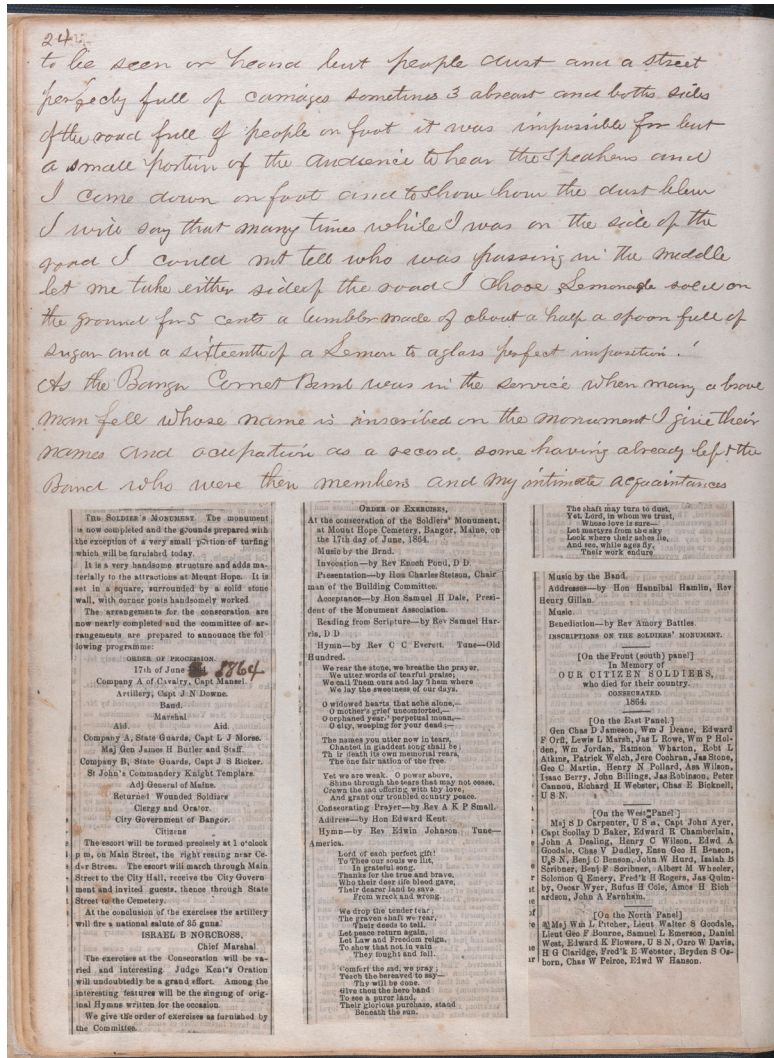 24
to be seen or heard but people dust and a street
perfecly full of carriages sometimes 3 abreast and both sides
of the road full of people on foot it was impossible for but
a small portion of the audience to hear the Speakers and
I came down on foot and to show how the dust blew
I will say that many times while I was on the side of the
road I could not tell who was passing in the middle
let me take either side of the road I chose Lemonade sold on
the ground for 5 cents a tumbler made of about a half a spoon full of
sugar and a sixteenth of a Lemon to a glass perfect imposition!
As the Bangor Cornet Band was in the service when many a brave
man fell whose name is inscribed on the monument I give their
names and ocupation as a record some having already left the
Band who were then members and my intimate acquaintances
THE SOLDIER'S MONUMENT. The monument
is now completed and the grounds prepared with
the exception of a very small portion of turfing
which will be furnished today.
It is a very handsome structure and adds ma-
terially to the attractions at Mount Hope. It is
set in a square, surrounded by a solid stone
wall, with corner posts handsomely worked
The arrangements for the consecration are
now nearly completed and the committee of ar-
rangements are prepared to announce the fol
lowing programme:
ORDER OF PROCESSION.
17th of June 1864
Company A of Cavalry, Capt Mansel.
Artillery, Capt J N Downe.
Band.
Marshal
Aid. Aid.
Company A, State Guards, Capt L J Morse.
Maj Gen James H Butler and Staff.
Company B, State Guards, Capt J S Ricker.
St John's Commandery Knight Templars.
Adj General of Maine.
Returned Wounded Soldiers
Clergy and Orator.
City Government of Bangor.
Citizens
The escort will be formed precisely at 1 o'clock
p m, on Main Street, the right resting near Ce-
dar Street. The escort will march through Main
Street to the City Hall, receive the City Govern
ment and invited guests, thence through State
Street to the Cemetery.
At the conclusion of the exercises the artillery
will fire a national salute of 35 guns.
ISRAEL B NORCROSS,
Chief Marshal
The exercises at the Consecration will be va-
ried and interesting. Judge Kent's Oration
will undoubtedly be a grand effort. Among the
interesting features will be the singing of orig-
inal Hymns written for the occasion.
We give the order of exercises as furnished by
the Committee.
ORDER OF EXERCISES,
At the consecration of the Soldiers' Monument,
at Mount Hope Cemetery, Bangor, Maine, on
the 17th day of June, 1864.
Music by the Band.
Invocation—by Rev Enoch Pond, D D.
Presentation—by Hon Charles Stetson, Chair
man of the Building Committee.
Acceptance—by Hon Samuel H Dale, Presi-
dent of the Monument Association.
Reading from Scripture—by Rev Samuel Har-
ris, D D
Hymn—by Rev C C Everett. Tune—Old
Hundred.
We rear the stone, we breathe the prayer,
We utter words of tearful praise;
We call Them ours and lay Them where
We lay the sweetness of our days.
O widowed hearts, that ache alone,—
O mother's grief uncomforted,—
O orphaned year,' perpetual moan,—
O city, weeping for your dead;—
The names you utter now in tears,
Chanted in gladdest song shall be;
Th ir death its own memorial rears,
The one fair nation of the free.
Yet we are weak. O power above,
Shine through the tears that may not cease.
Crown the sad offering with thy love,
And grant our troubled country peace.
Consecrating Prayer—by Rev A K P Small.
Address—by Hon Edward Kent.
Hymn—by Rev Edwin Johnson. Tune—
America.
Lord of each perfect gift!
To Thee our souls we lift,
In grateful song.
Thanks for the true and brave,
Who their dear life blood gave,
Their dearer land to save
From wreck and wrong.
We drop the tender tear;
The graven shaft we rear,
Their deeds to tell.
Let peace return again,
Let Law and Freedom reign,
To show that not in vain
They fought and fell.
Comfort the sad, we pray;
Teach the bereaved to say—
Thy will be done.
Give thou the hero band
To see a purer land,
Their glorious purchase, stand
Beneath the sun.
The shaft may turn to dust,
Yet. Lord, in whom we trust,
Whose love is sure—
Let martyrs from the sky
Look where their ashes lie,
And see, while ages fly,
Their work endure
Music by the Band.
Addresses—by Hon Hannibal Hamlin, Rev
Henry Gillan.
Music.
Benediction—by Rev Amory Battles.
INSCRIPTIONS ON THE SOLDIERS' MONUMENT.
[On the Front (south) panel]
In Memory of
OUR CITIZEN SOLDIERS,
who died for their country.
CONSECRATED.
1864.
[On the East Panel.]
Gen Chas D Jameson, Wm J Deane, Edward
F Orff, Lewis L Marsh, Jas L Rowe, Wm P Hol-
den, Wm Jordan, Ramson Wharton, Robt L
Atkins, Patrick Welch, Jere Cochran, Jas Stone,
Geo C Martin, Henry N Pollard, Asa Wilson,
Isaac Berry, John Billings, Jas Robinson, Peter
Cannon, Richard H Webster, Chas E Bicknell,
U S N.
[On the West Panel]
Maj S D Carpenter, U S A, Capt John Ayer,
Capt Scollay D Baker, Edward R Chamberlain,
John A Dealing, Henry C Wyatt, Edwd A
Goodale, Chas V Dudley, Ensn Geo H Benson,
U S N, Benj C Benson, John W Hurd, Isaiah B
Scribner, Benj F Scribner, Albert M Wheeler,
Solomon G Emery, Fred'k H Rogers, Jas Quim-
by, Oscar Wyer, Rufus H Cole, Amos H Rich
ardson, John A Farnham.
[On the North Panel]
Maj Wm L Pitcher, Lieut Walter S Goodale,
Lieut Geo F Bourne, Samuel L Emerson, Daniel
West, Edward K Flowers, U S N, Ozro W Davis,
H G Claridge, Fred'k E Webster, Bryden S Os-
born, Chas W Peirce, Edwd W Hanson.